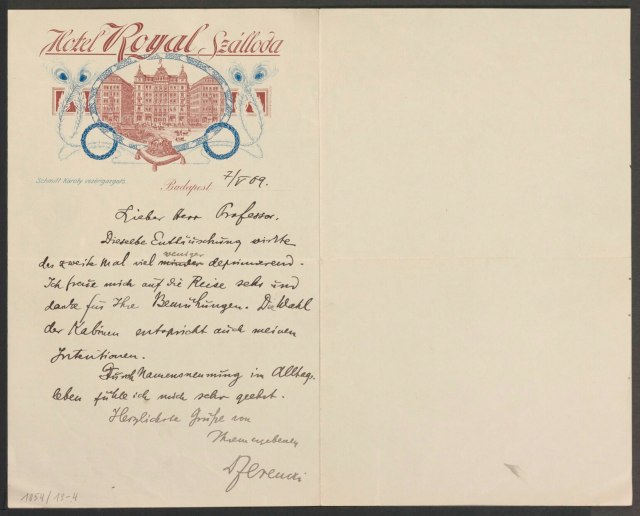 Hotel Royal Szálloda
Schmidt Károly vezérigazgató
Budapest 7/V 09.
Lieber Herr Professor.
Dieselbe Enttäuschung wirkte
das zweite Mal viel minder weniger deprimierend.
Ich freue mich auf die Reise sehr und
danke für Ihre Bemühungen. Die Wahl
der Kabinen entspricht auch meinen
Intentionen.
Durch Namensnennung im Alltag-
leben fühle ich mich sehr geehrt.
Herzlichste Grüße von
Ihrem ergebenen
Dr Ferenczi
1854/13-4